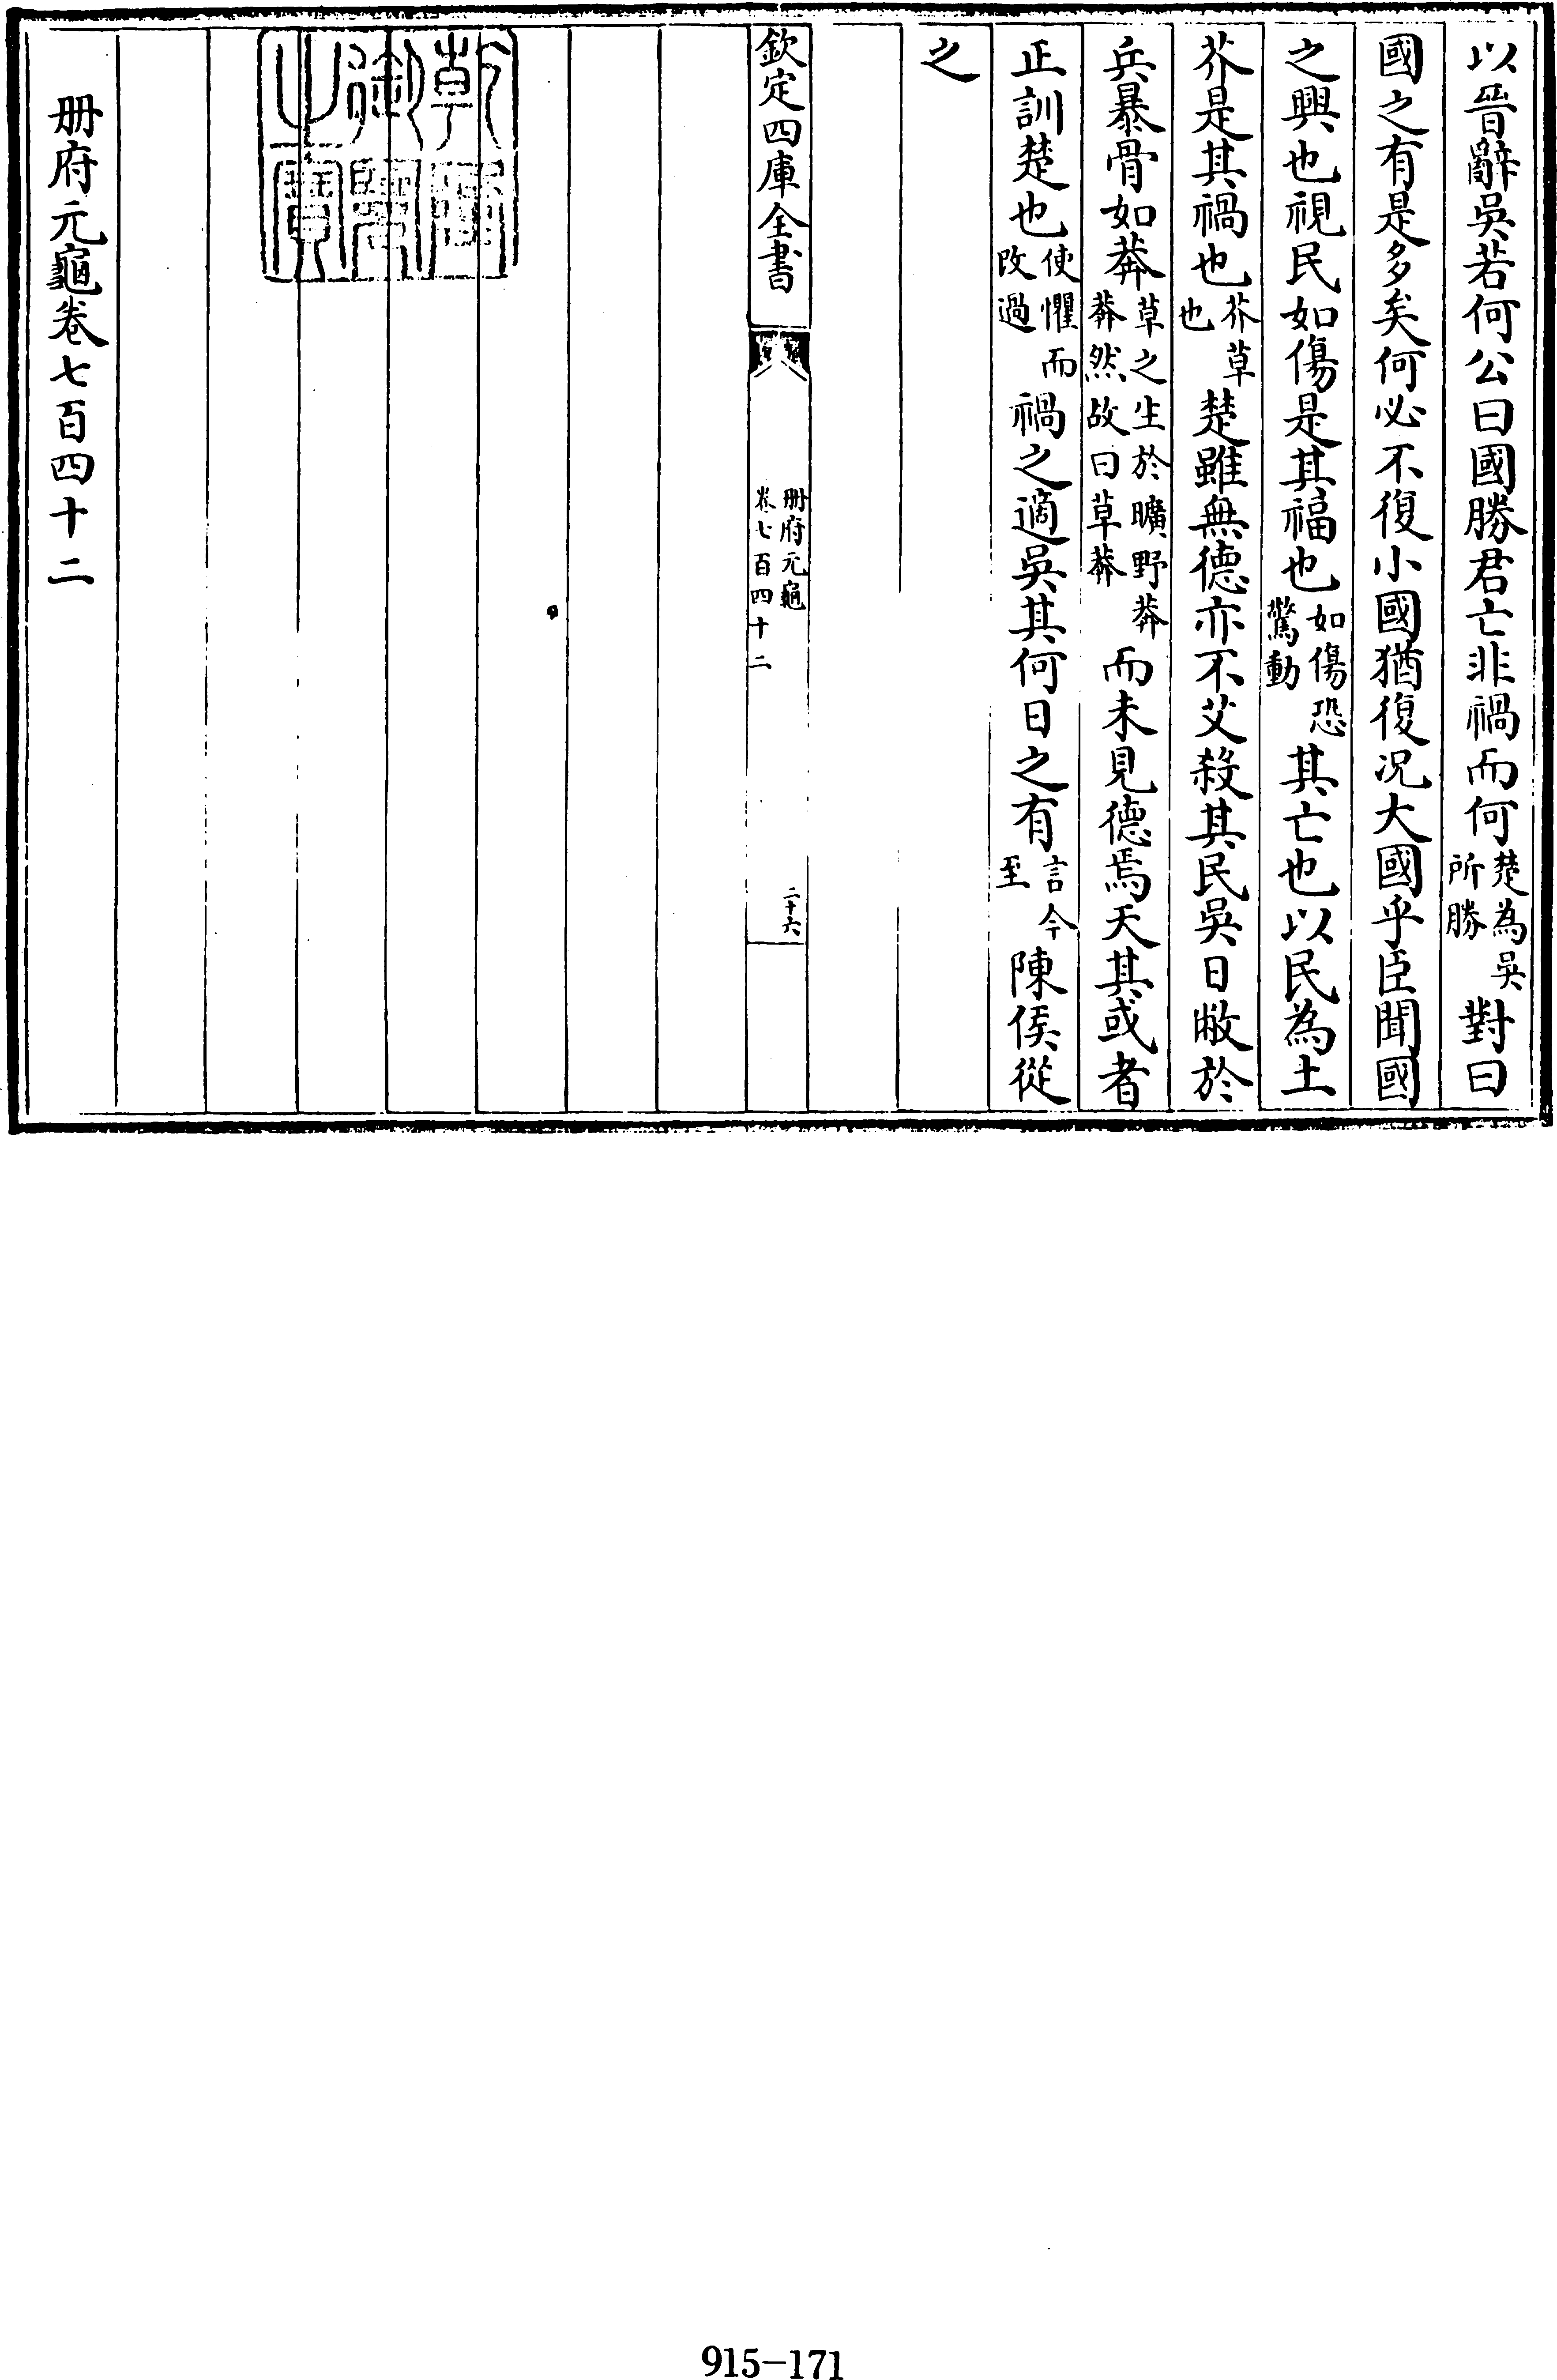 以晉辭吳若何公曰國勝君亡非禍而何楚為吳所勝對曰
國之有是多矣何必不復小國猶復况大國乎臣聞國
之興也視民如傷是其福也如傷恐驚動其亡也以民為土
芥是其禍也芥草也楚雖無德亦不艾殺其民吳日敝於
兵暴骨如莽草之生於曠野莽莽然故曰草莽而未見德焉天其或者
正訓楚也使懼而改過禍之適吳其何日之有言今至陳侯從
之
欽定四庫全書
册府元龜
卷七百四十二
二十六
乾隆御覽之寶
册府元龜卷七百四十二
915-171